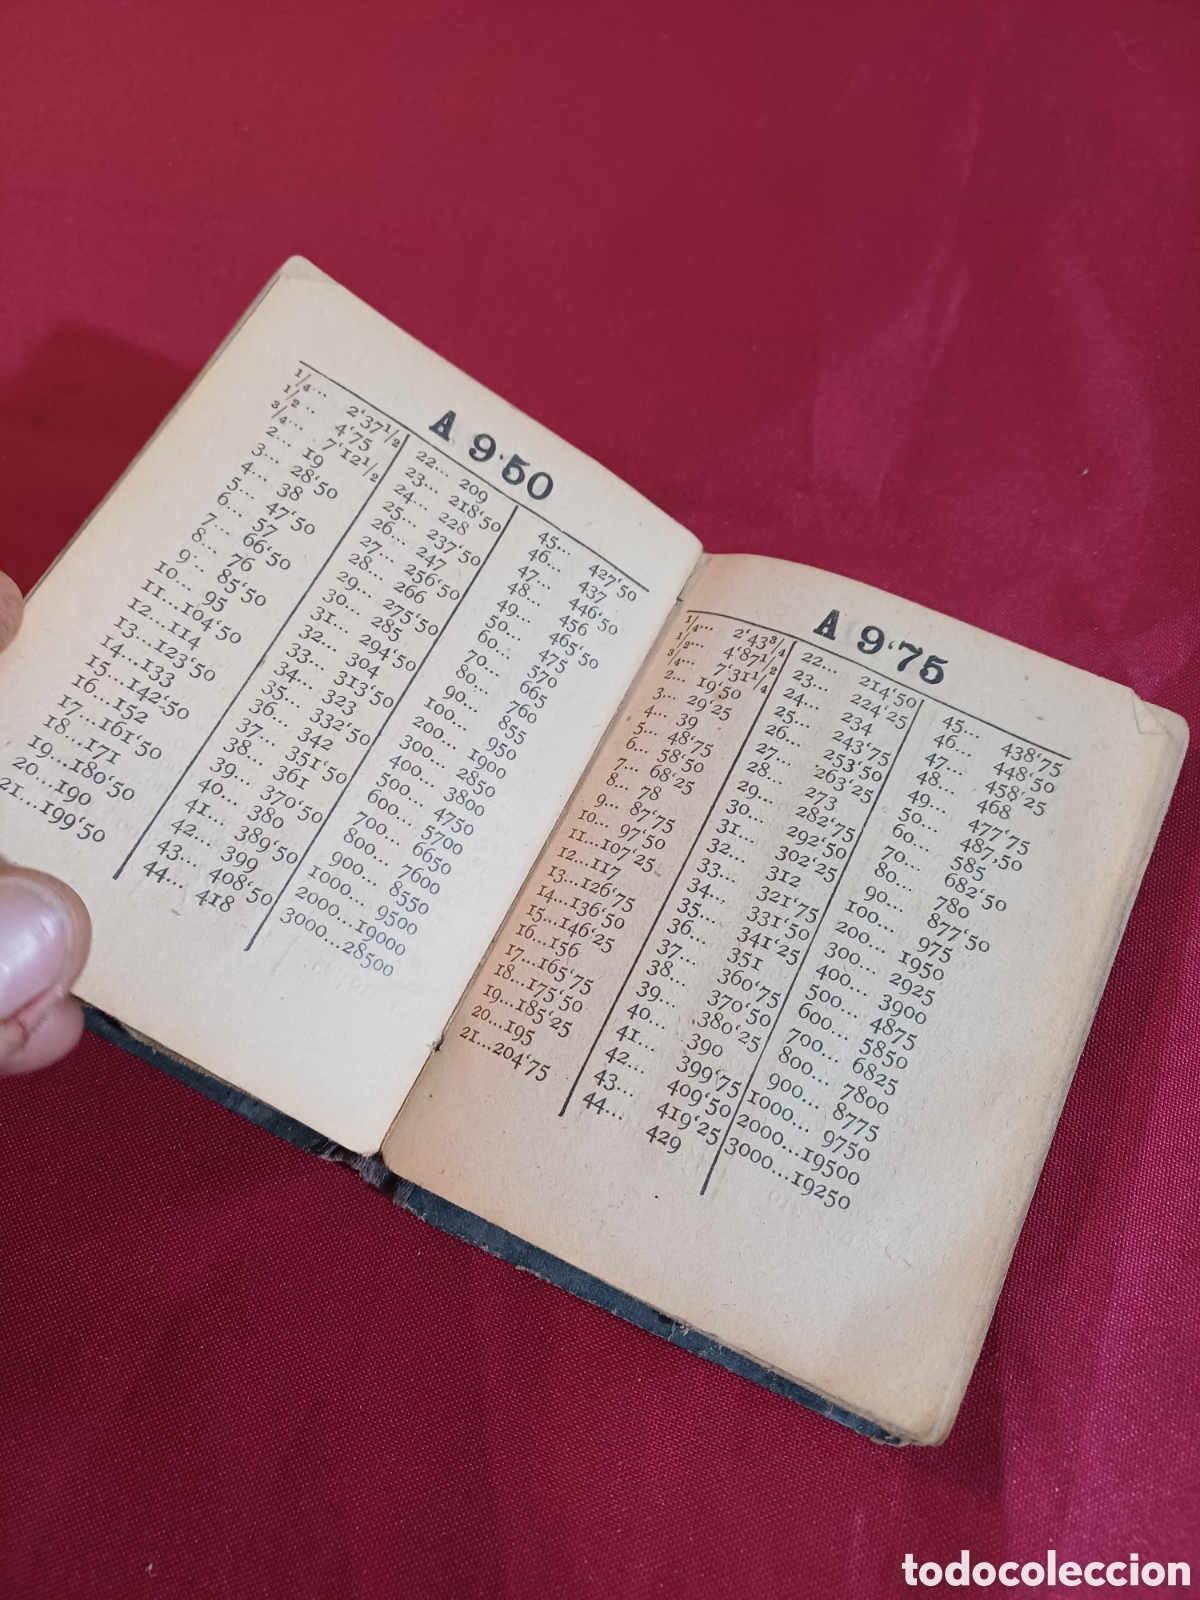 A 9'50
1/4... 2'37 1/2
1/2.. 4'75
3/4... 7'12 1/2
2... 19
3... 28'50
4... 38
5... 47'50
6... 57
7... 66'50
8... 76
9.. 85'50
10... 95
11...104'50
12...114
13...123'50
14...133
15...142'50
16...152
17...161'50
18...171
19...180'50
20...190
21...199'50
22... 209
23... 218'50
24... 228
25... 237'50
26... 247
27... 256'50
28... 266
29... 275'50
30... 285
31... 294'50
32... 304
33... 313'50
34... 323
35... 332'50
36... 342
37... 351'50
38... 361
39... 370'50
40... 380
41... 389'50
42... 399
43... 408'50
44... 418
45... 427'50
46... 437
47... 446'50
48... 456
49... 465'50
50... 475
60... 570
70... 665
80... 760
90... 855
100... 950
200... 1900
300... 2850
400... 3800
500... 4750
600... 5700
700... 6650
800... 7600
900... 8550
1000... 9500
2000...19000
3000...28500
A 9'75
1/4... 2'43 3/4
1/2... 4'87 1/2
3/4... 7'31 1/4
2... 19'50
3... 29'25
4... 39
5... 48'75
6... 58'50
7... 68'25
8... 78
9... 87'75
10... 97'50
11...107'25
12...117
13...126'75
14...136'50
15...146'25
16...156
17...165'75
18...175'50
19...185'25
20...195
21...204'75
22... 214'50
23... 224'25
24... 234
25... 243'75
26... 253'50
27... 263'25
28... 273
29... 282'75
30... 292'50
31... 302'25
32... 312
33... 321'75
34... 331'50
35... 341'25
36... 351
37... 360'75
38... 370'50
39... 380'25
40... 390
41... 399'75
42... 409'50
43... 419'25
44... 429
45... 438'75
46... 448'50
47... 458'25
48... 468
49... 477'75
50... 487,50
60... 585
70... 682'50
80... 780
90... 877'50
100... 975
200... 1950
300... 2925
400... 3900
500... 4875
600... 5850
700... 6825
800... 7800
900... 8775
1000... 9750
2000...19500
3000...19250
todocoleccion